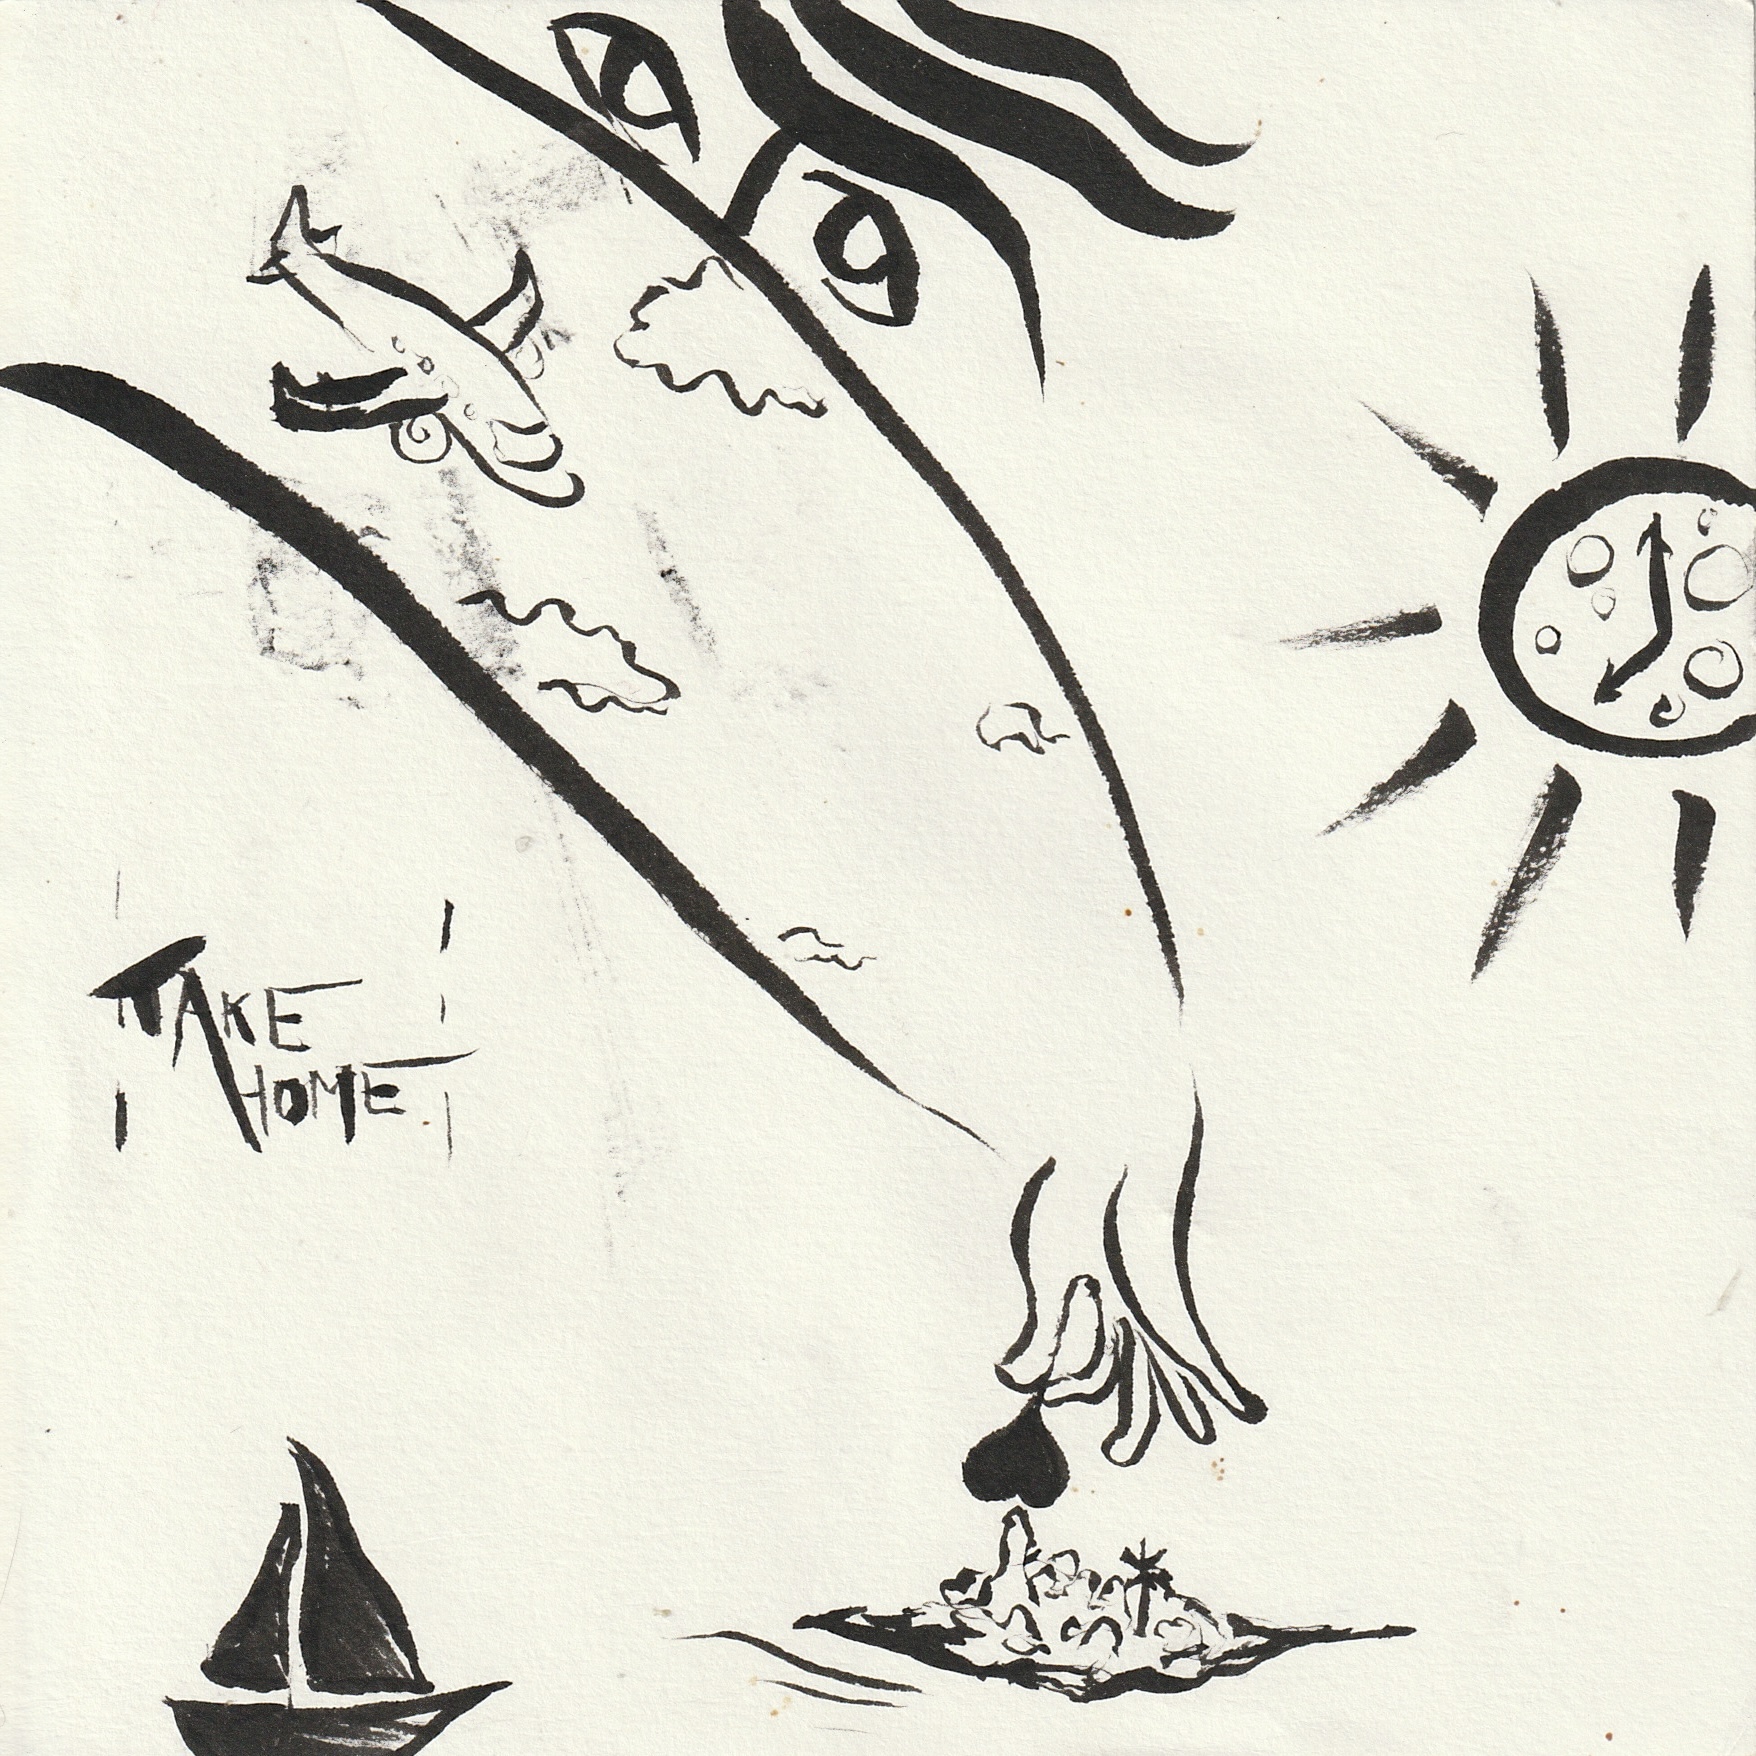 TAKE
HOME